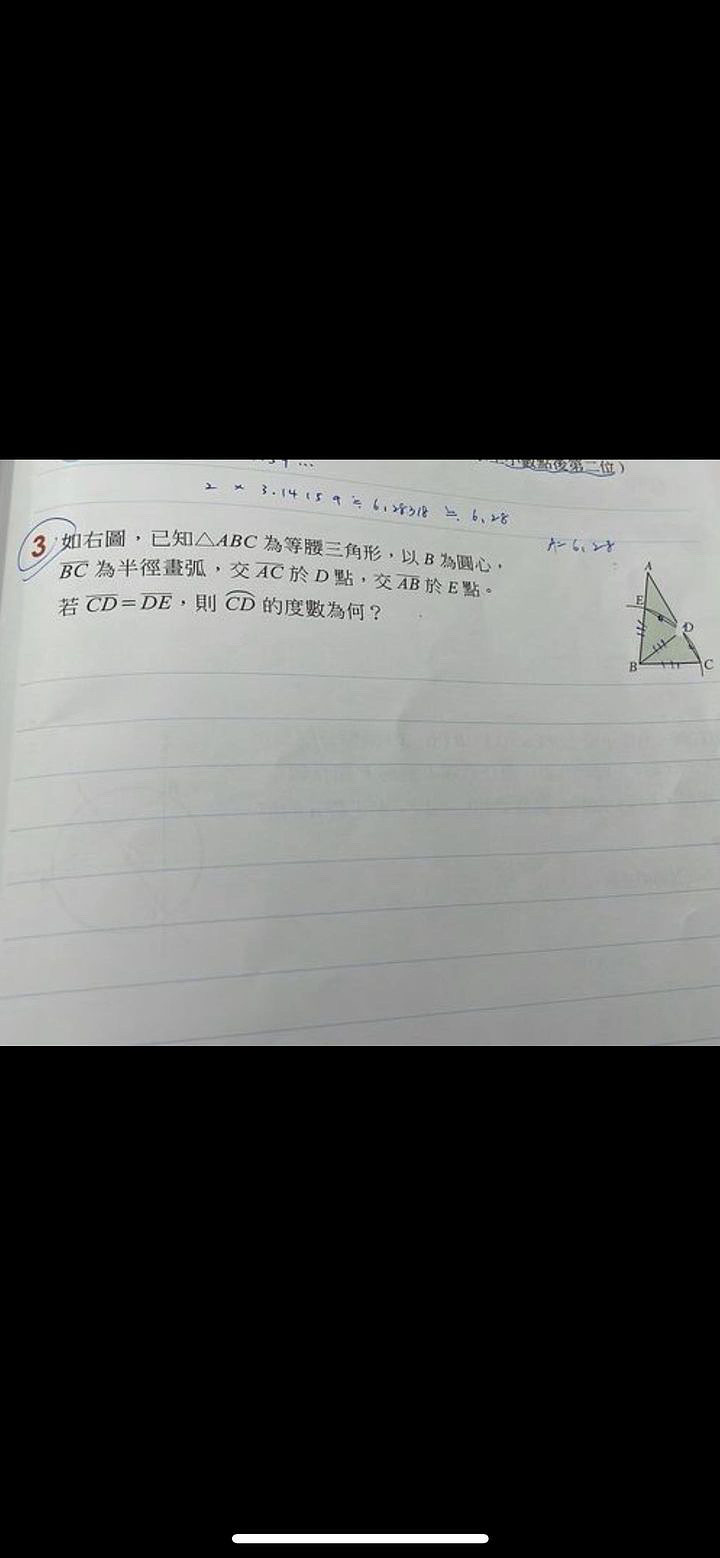 小數點後第二位)
2 × 3.14159 ≒ 6.28318 ≒ 6.28
A= 6.28
3 如右圖，已知△ABC 為等腰三角形，以 B 為圓心，
BC 為半徑畫弧，交 AC 於 D 點，交 AB 於 E 點。
若 CD＝DE，則 CD 的度數為何？
A
E
D
B
C